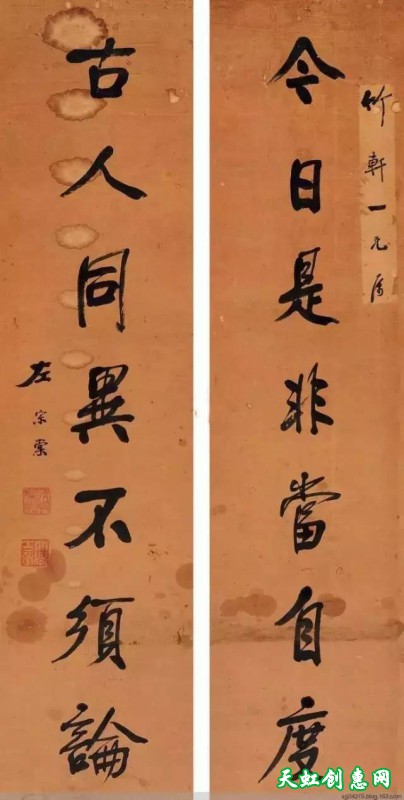 竹軒一兄属
今日是非當自度
古人同異不須論
左宗棠
天虹创惠网